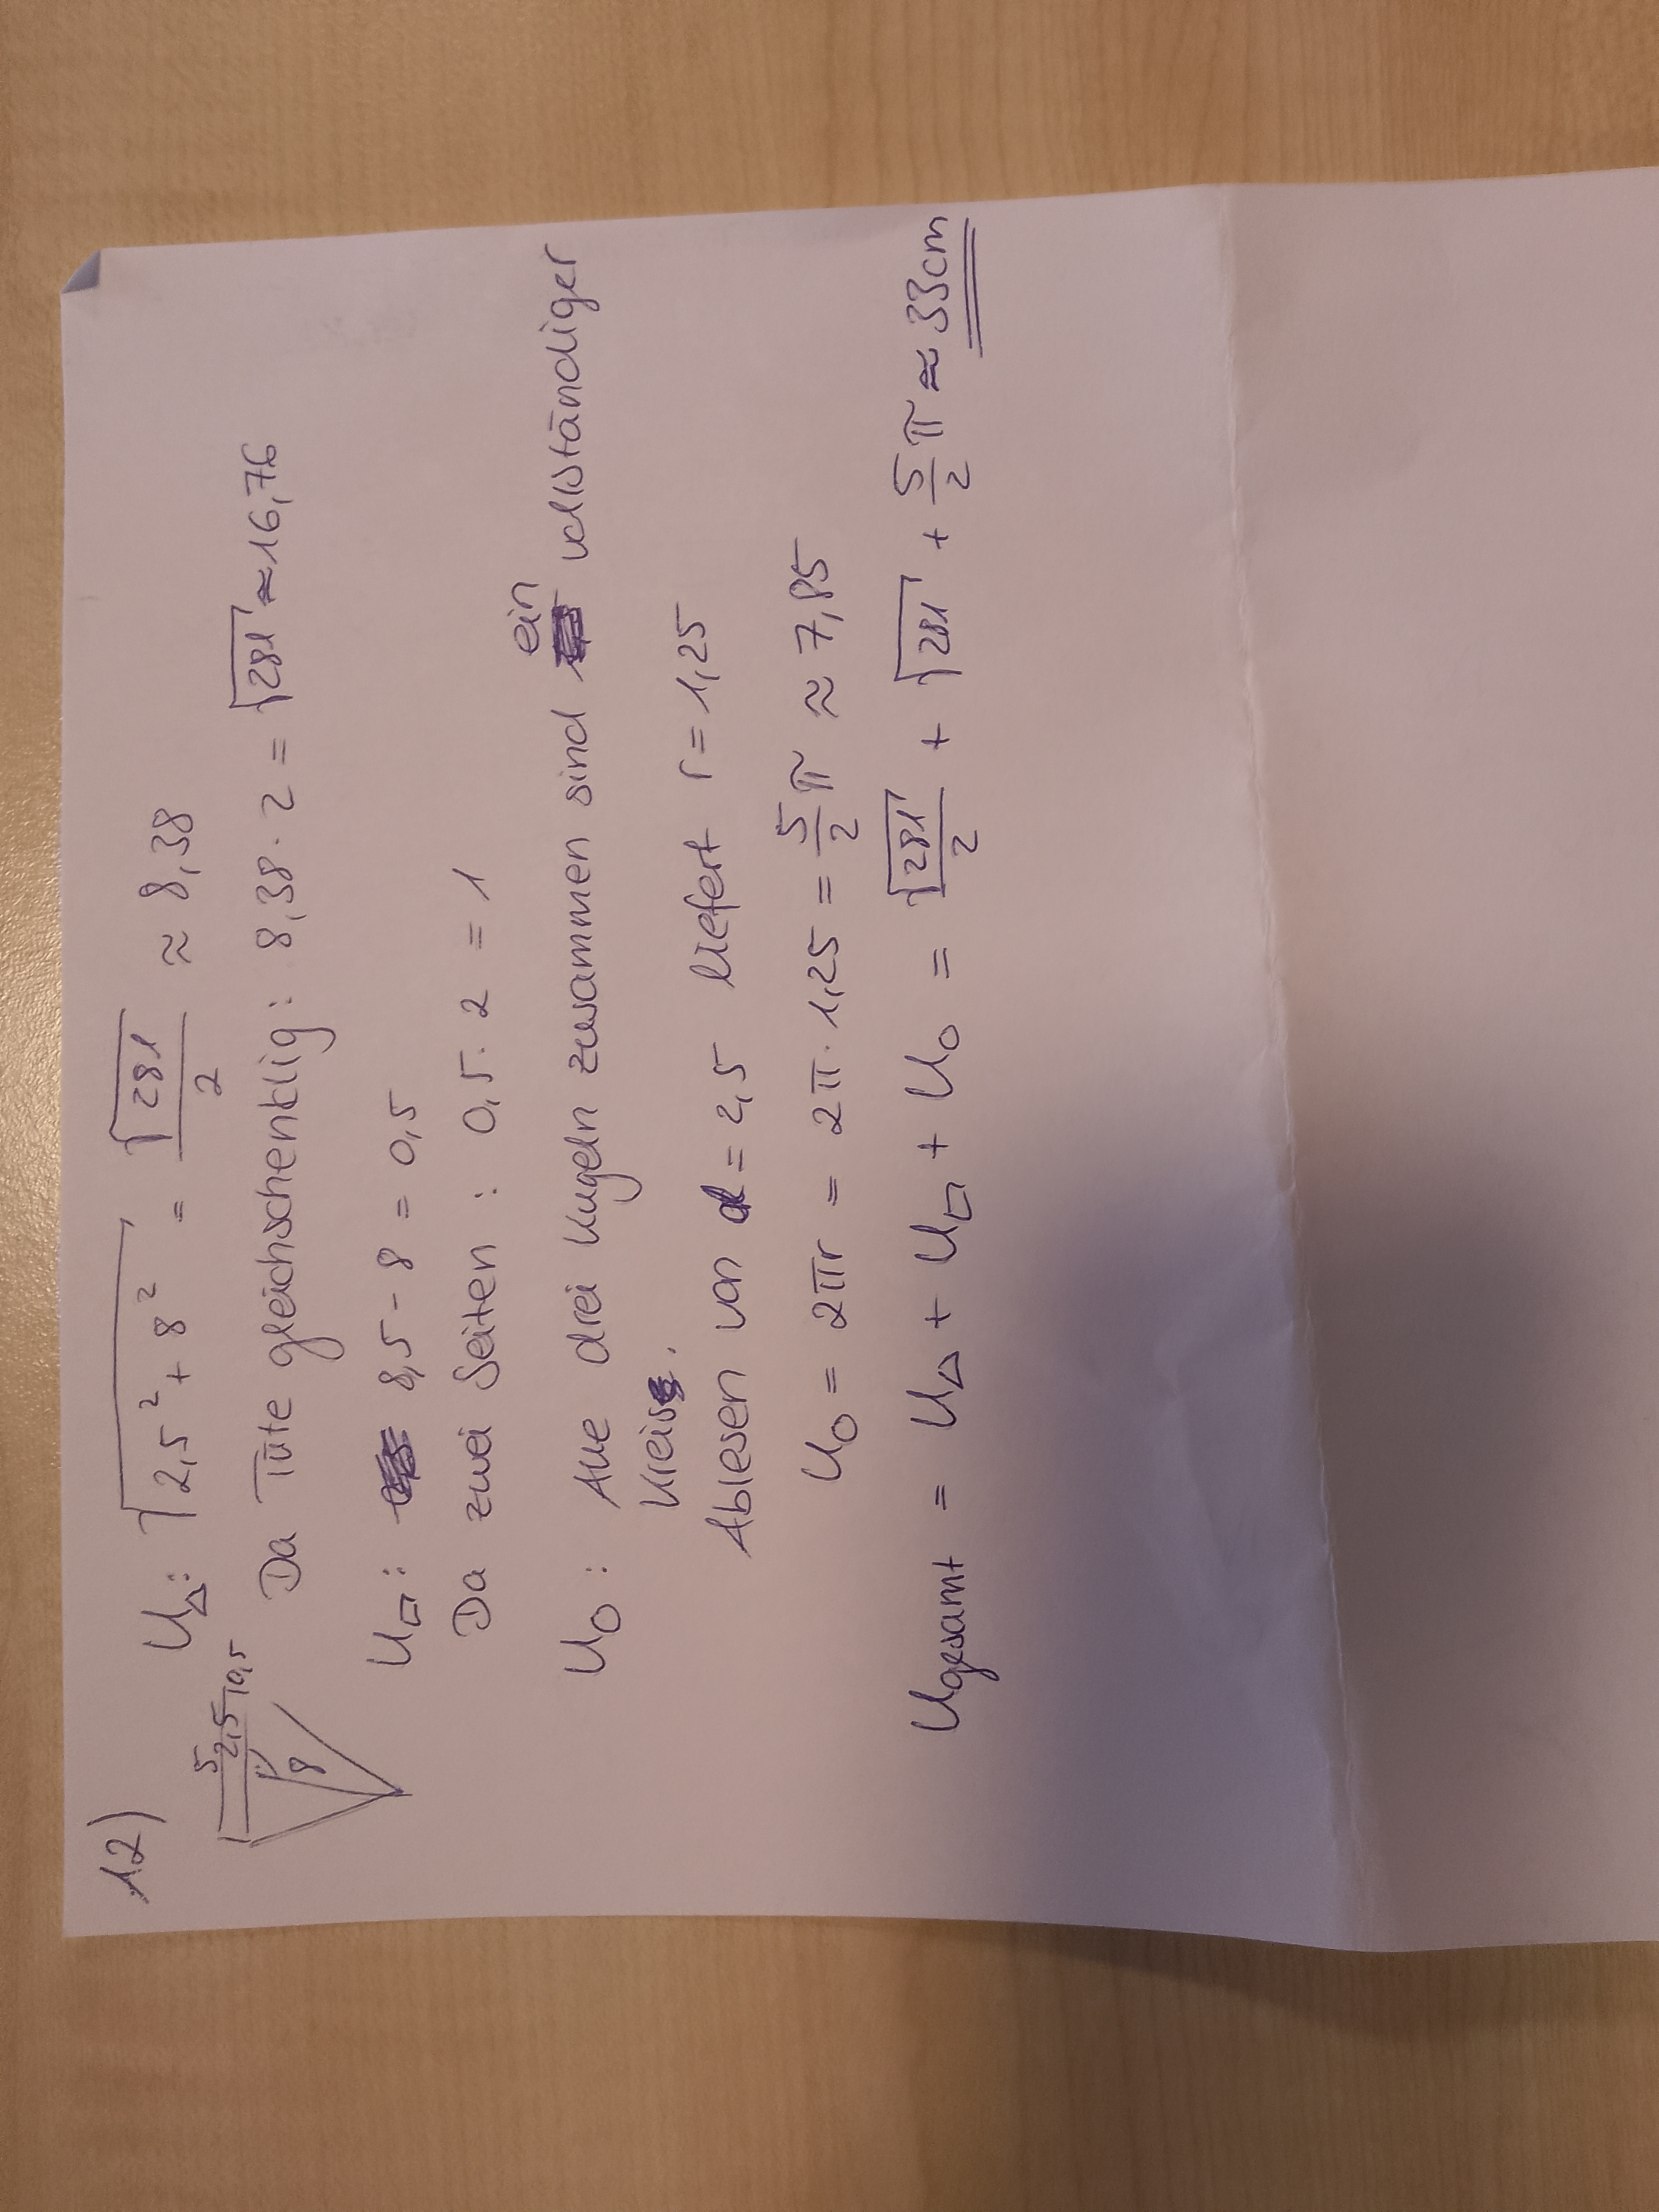 12)
5
2,5
0,5
8
U△: √2,5² + 8² = √281/2 ≈ 8,38
Da Tüte gleichschenklig: 8,38 · 2 = √281 ≈ 16,76
U▭: 8,5 - 8 = 0,5
Da zwei Seiten: 0,5 · 2 = 1
U○: Alle drei Kugeln zusammen sind ein vollständiger
Kreis.
Ablesen von d = 2,5 liefert r = 1,25
U○ = 2πr = 2π · 1,25 = 5/2 π ≈ 7,85
Ugesamt = U△ + U▭ + U○ = √281/2 + √281 + 5/2 π ≈ 33cm